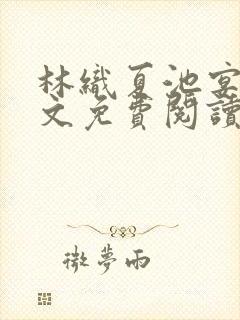 林織夏池宴
文免費閱讀
微夢雨